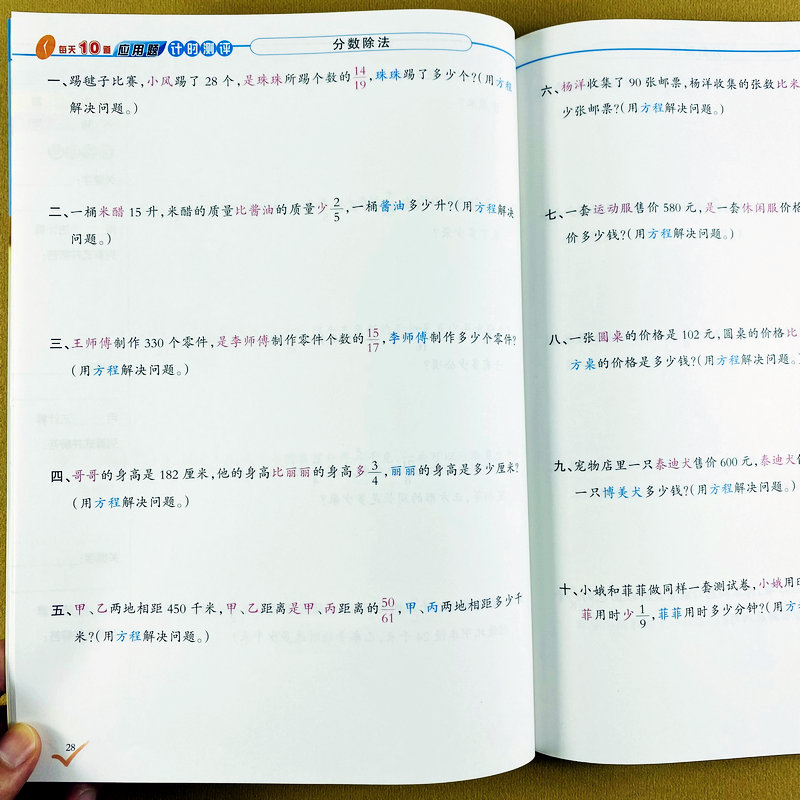 每天10道 应用题 计时测评
分数除法
一、踢毽子比赛,小凤踢了 28 个,是珠珠所踢个数的14/19,珠珠踢了多少个?(用方程
解决问题。)
二、一桶米醋 15 升,米醋的质量比酱油的质量少2/5,一桶酱油多少升?(用方程解决
问题。)
三、王师傅制作 330 个零件,是李师傅制作零件个数的15/17,李师傅制作多少个零件?
(用方程解决问题。)
四、哥哥的身高是 182 厘米,他的身高比丽丽的身高多3/4,丽丽的身高是多少厘米?
(用方程解决问题。)
五、甲、乙两地相距 450 千米,甲、乙距离是甲、丙距离的50/61,甲、丙两地相距多少千
米?(用方程解决问题。)
28
六、杨洋收集了 90 张邮票,杨洋收集的张数比
少张邮票?(用方程解决问题。)
七、一套运动服售价 580 元,是一套休闲服价
价多少钱?(用方程解决问题。)
八、一张圆桌的价格是 102 元,圆桌的价格比
方桌的价格是多少钱?(用方程解决问题。)
九、宠物店里一只泰迪犬售价 600 元,泰迪犬
一只博美犬多少钱?(用方程解决问题。)
十、小娥和菲菲做同样一套测试卷,小娥用时
菲用时少1/9,菲菲用时多少分钟?(用方